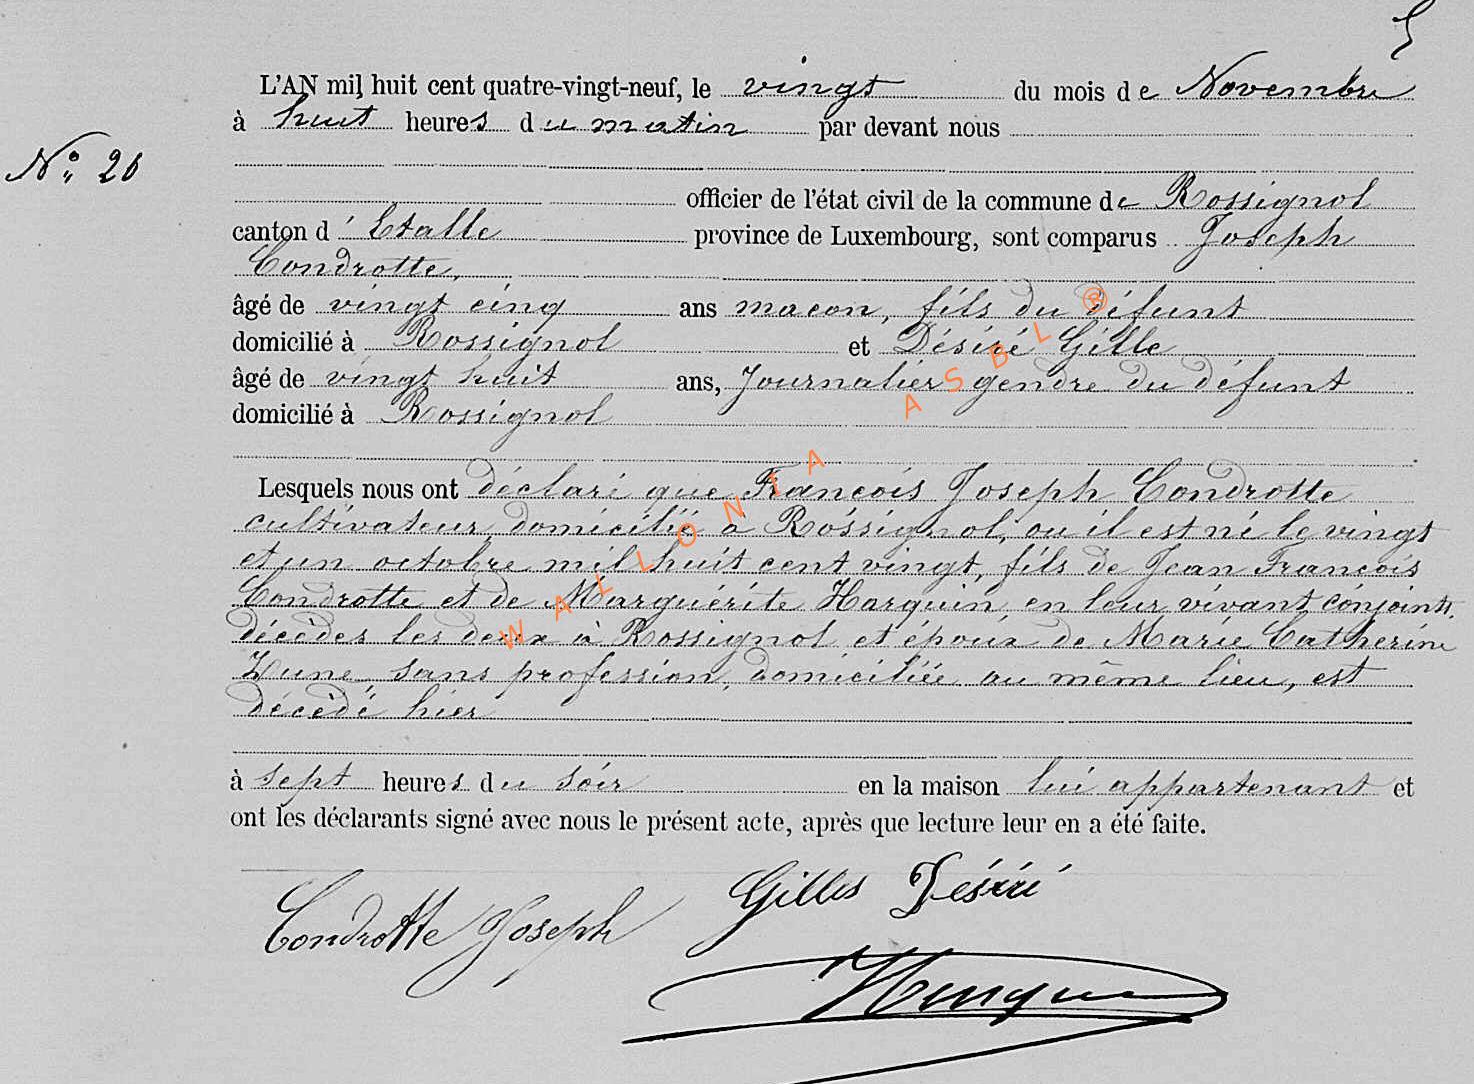 L'AN mil huit cent quatre-vingt-neuf, le vingt du mois de Novembre
à huit heures du matin par devant nous
N° 26
officier de l'état civil de la commune de Rossignol
canton d'Etalle province de Luxembourg, sont comparus Joseph
Condrotte,
âgé de vingt cinq ans macon, fils du défunt
domicilié à Rossignol et Désiré Gille
âgé de vingt huit ans, Journalier gendre du défunt
domicilié à Rossignol
Lesquels nous ont déclaré que Francois Joseph Condrotte
cultivateur, domicilié à Rossignol, ou il est né le vingt
et un octobre mil huit cent vingt, fils de Jean Francois
Condrotte et de Marguérite Harquin en leur vivant conjoints
décèdés les deux à Rossignol et époux de Marie Catherine
Zune sans profession, domiciliée au même lieu, est
décédé hier
à sept heures du soir en la maison lui appartenant et
ont les déclarants signé avec nous le présent acte, après que lecture leur en a été faite.
Condrotte Joseph Gilles Désiré
WALLONIA ASBL ®